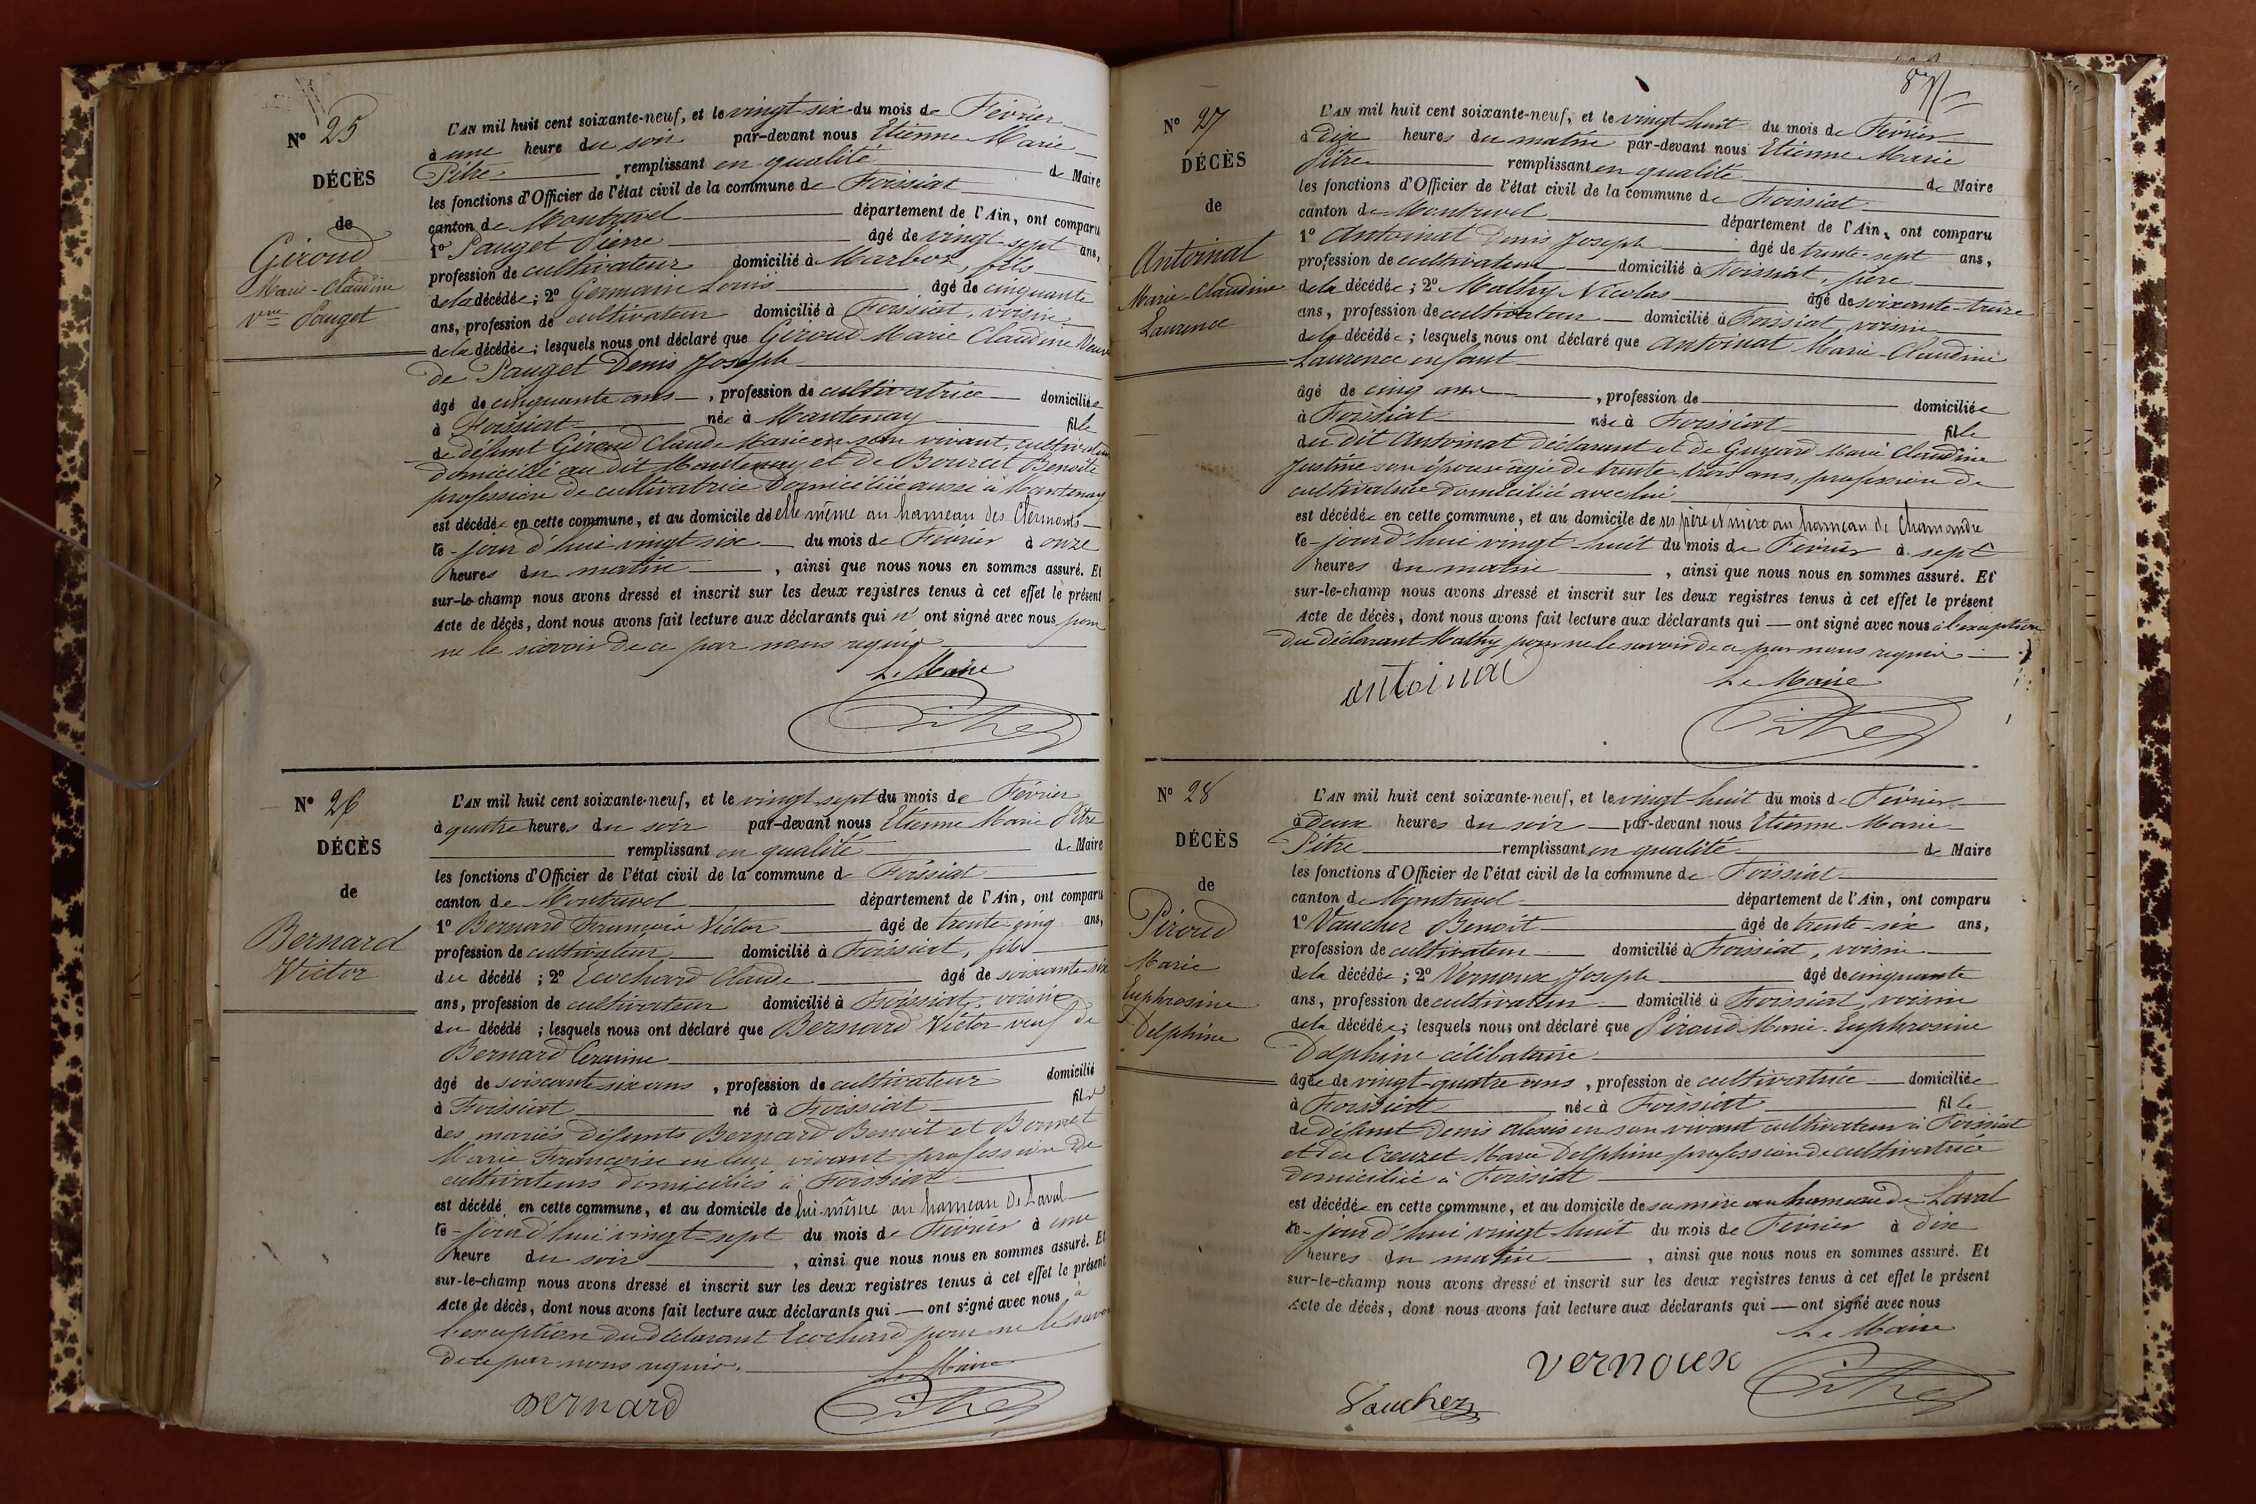 N° 25
DÉCÈS
de
Giroud
Marie-Claudine
Vve Pauget
L'AN mil huit cent soixante-neuf, et le vingt-six du mois de Février
à une heure du soir par-devant nous Etienne Marie
Pitre remplissant en qualité de Maire
les fonctions d'Officier de l'état civil de la commune de Foissiat
canton de Montrevel département de l'Ain, ont comparu
1° Pauget Pierre âgé de vingt-sept ans,
profession de cultivateur domicilié à Marboz, fils
de la décédée; 2° Germain Louis âgé de cinquante
ans, profession de cultivateur domicilié à Foissiat, voisin
de la décédée; lesquels nous ont déclaré que Giroud Marie Claudine Veuve
de Pauget Denis Joseph
âgé de cinquante ans, profession de cultivatrice domiciliée
à Foissiat née à Mantenay fille
de défunt Giroud Claude Marie en son vivant, cultivateur
domicilié au dit Mantenay et de Bourcet Benoîte
profession de cultivatrice domiciliée aussi à Mantenay
est décédée en cette commune, et au domicile de elle même au hameau des Clermonts
ce-jourd'hui vingt-six du mois de Février à onze
heures du matin, ainsi que nous nous en sommes assuré. Et
sur-le-champ nous avons dressé et inscrit sur les deux registres tenus à cet effet le présent
Acte de décès, dont nous avons fait lecture aux déclarants qui n' ont signé avec nous pour
ne le savoir de ce par nous requis
Le Maire
Pitre
N° 26
DÉCÈS
de
Bernard
Victor
L'AN mil huit cent soixante-neuf, et le vingt-sept du mois de Février
à quatre heures du soir par-devant nous Etienne Marie Pitre
remplissant en qualité de Maire
les fonctions d'Officier de l'état civil de la commune de Foissiat
canton de Montrevel département de l'Ain, ont comparu
1° Bernard François Victor âgé de trente-cinq ans,
profession de cultivateur domicilié à Foissiat, fils
du décédé; 2° Ecochard Claude âgé de soixante-six
ans, profession de cultivateur domicilié à Foissiat, voisin
du décédé; lesquels nous ont déclaré que Bernard Victor veuf de
Bernard
âgé de soixante-six ans, profession de cultivateur domicilié
à Foissiat né à Foissiat fils
des mariés défunts Bernard Benoît et Bonnet
Marie Françoise en leur vivant profession de
cultivateurs domiciliés à Foissiat
est décédé en cette commune, et au domicile de lui-même au hameau de Laval
ce-jourd'hui vingt-sept du mois de Février à une
heure du soir, ainsi que nous nous en sommes assuré. Et
sur-le-champ nous avons dressé et inscrit sur les deux registres tenus à cet effet le présent
Acte de décès, dont nous avons fait lecture aux déclarants qui ont signé avec nous à
l'exception du déclarant Ecochard pour ne le savoir
de ce par nous requis.
Le Maire
Bernard
Pitre
N° 27
DÉCÈS
de
Antoinat
Marie-Claudine
Laurence
L'AN mil huit cent soixante-neuf, et le vingt-huit du mois de Février
à dix heures du matin par-devant nous Etienne Marie
Pitre remplissant en qualité de Maire
les fonctions d'Officier de l'état civil de la commune de Foissiat
canton de Montrevel département de l'Ain, ont comparu
1° Antoinat Denis Joseph âgé de trente-sept ans,
profession de cultivateur domicilié à Foissiat, père
de la décédée; 2° Mathy Nicolas âgé de soixante-treize
ans, profession de cultivateur domicilié à Foissiat, voisin
de la décédée; lesquels nous ont déclaré que Antoinat Marie-Claudine
Laurence enfant
âgé de cinq ans, profession de domiciliée
à Foissiat née à Foissiat fille
du dit Antoinat déclarant et de Guyard Marie Claudine
Justine son épouse âgée de trente-trois ans, profession de
cultivatrice domiciliée avec lui
est décédée en cette commune, et au domicile de ses père et mère au hameau de Chamandre
ce-jourd'hui vingt-huit du mois de Février à sept
heures du matin, ainsi que nous nous en sommes assuré. Et
sur-le-champ nous avons dressé et inscrit sur les deux registres tenus à cet effet le présent
Acte de décès, dont nous avons fait lecture aux déclarants qui ont signé avec nous à l'exception
du déclarant Mathy pour ne le savoir de ce par nous requis
Le Maire
antoinat
Pitre
N° 28
DÉCÈS
de
Piroud
Marie
Euphrosine
Delphine
L'AN mil huit cent soixante-neuf, et le vingt-huit du mois de Février
à deux heures du soir par-devant nous Etienne Marie
Pitre remplissant en qualité de Maire
les fonctions d'Officier de l'état civil de la commune de Foissiat
canton de Montrevel département de l'Ain, ont comparu
1° Vaucher Benoit âgé de trente-six ans,
profession de cultivateur domicilié à Foissiat, voisin
de la décédée; 2° Vernoux Joseph âgé de cinquante
ans, profession de cultivateur domicilié à Foissiat, voisin
de la décédée; lesquels nous ont déclaré que Piroud Marie-Euphrosine
Delphine célibataire
âgée de vingt-quatre ans, profession de cultivatrice domiciliée
à Foissiat née à Foissiat fille
de défunt Denis Alexis en son vivant cultivateur à Foissiat
et de Creuzet Marie Delphine profession de cultivatrice
domiciliée à Foissiat
est décédée en cette commune, et au domicile de sa mère au hameau de Laval
ce-jourd'hui vingt-huit du mois de Février à dix
heures du matin, ainsi que nous nous en sommes assuré. Et
sur-le-champ nous avons dressé et inscrit sur les deux registres tenus à cet effet le présent
Acte de décès, dont nous avons fait lecture aux déclarants qui ont signé avec nous
Le Maire
vernoux
Vaucher
Pitre